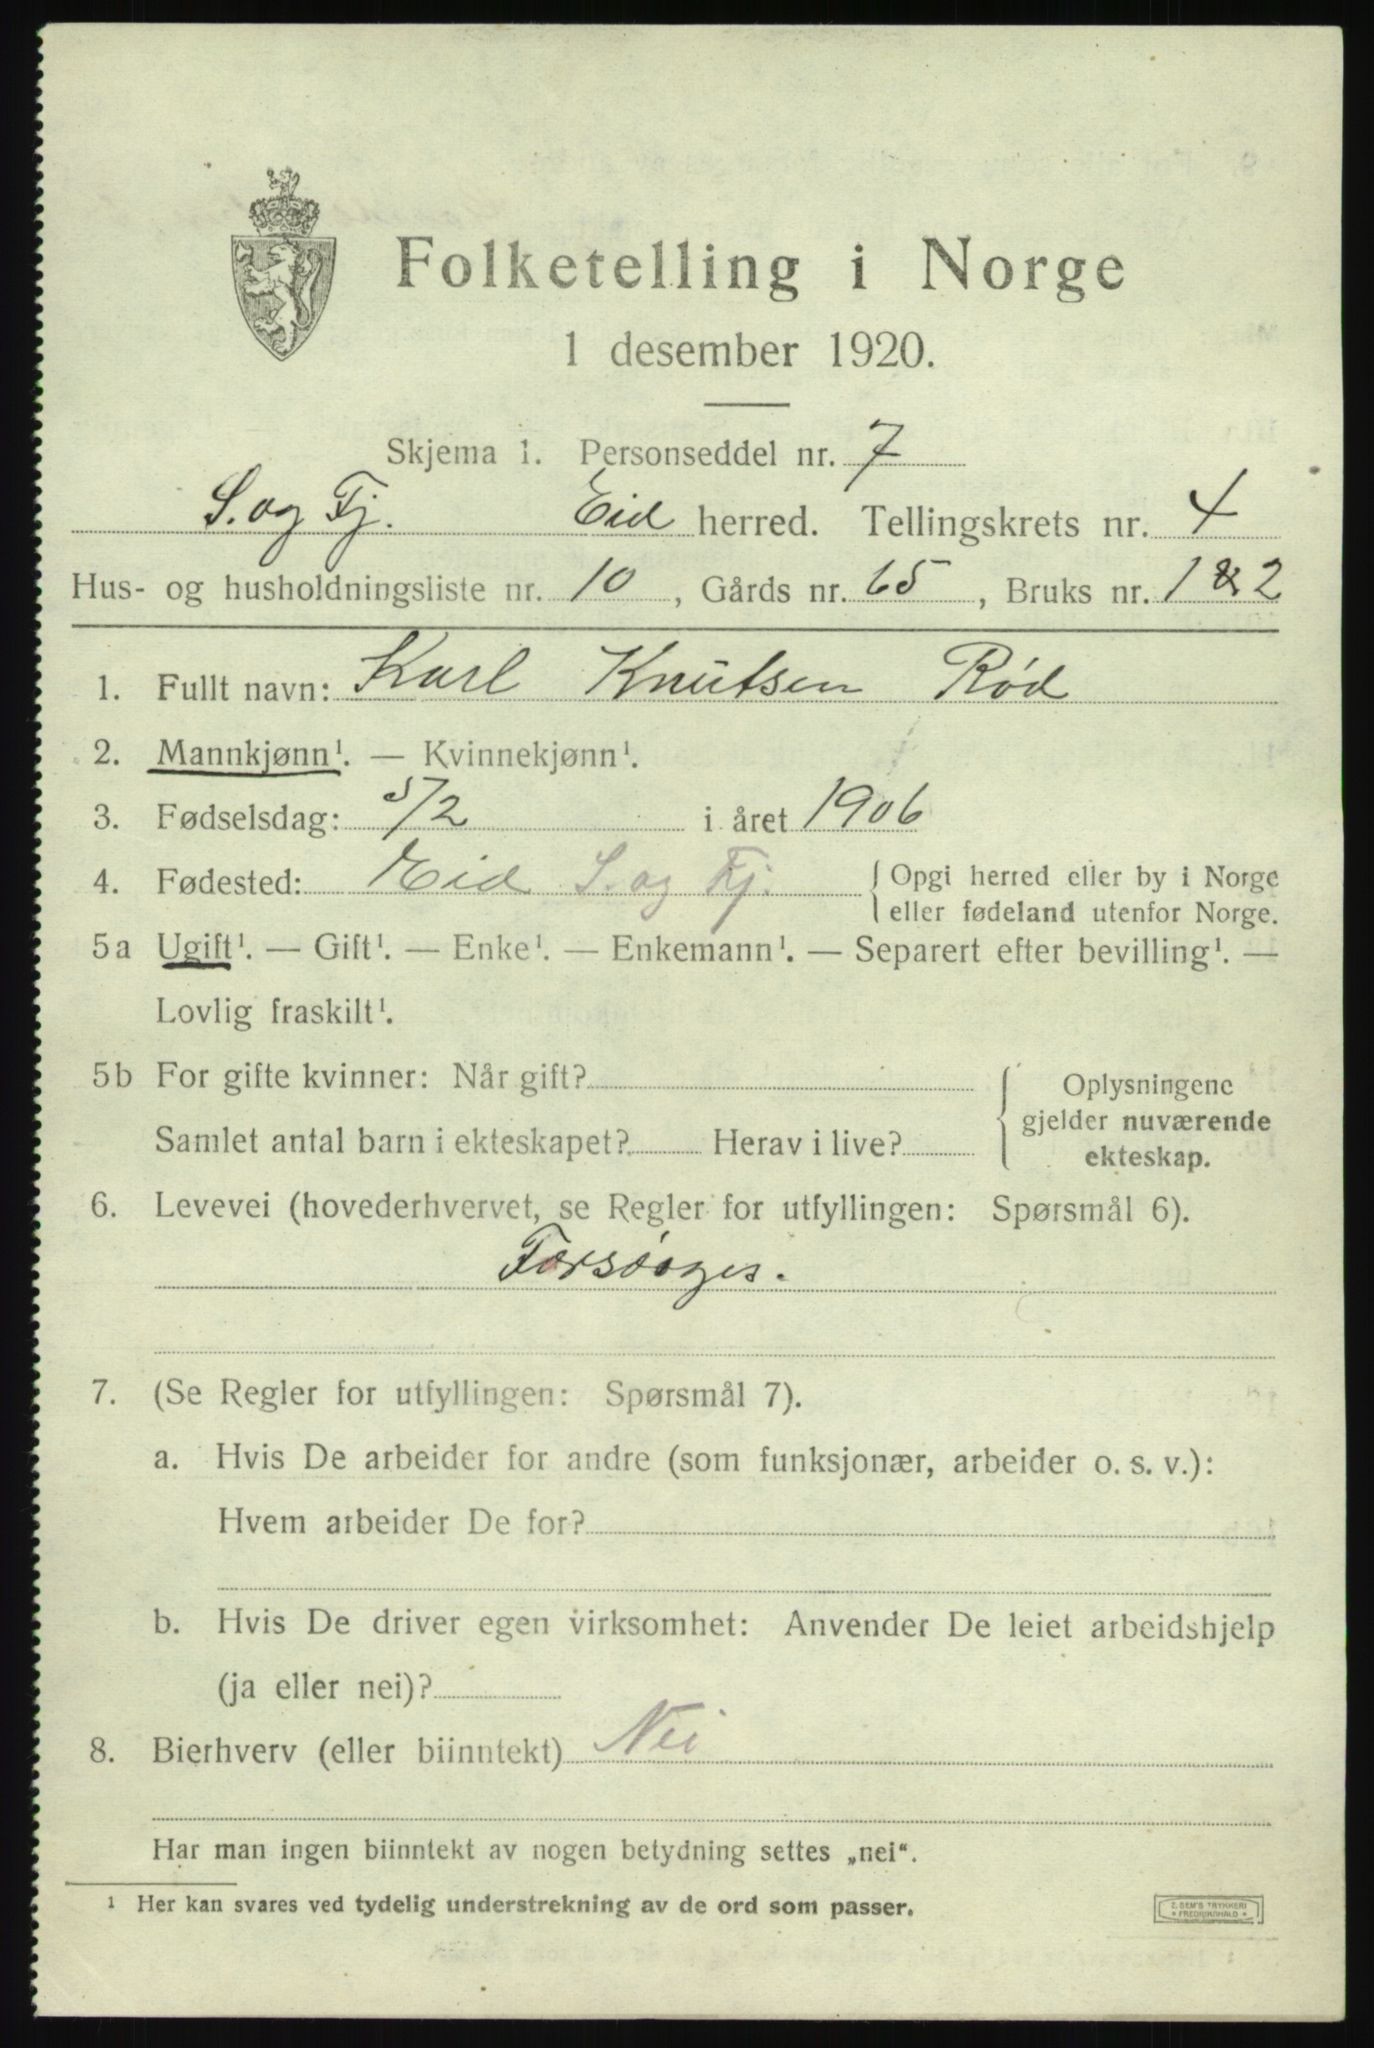 Folketelling i Norge
1 desember 1920.
Skjema 1. Personseddel nr. 7
S. og Fj. Eid herred. Tellingskrets nr. 4
Hus- og husholdningsliste nr. 10, Gårds nr. 65, Bruks nr. 1 & 2
1. Fullt navn: Karl Knutsen Rød
2. Mannkjønn¹. — Kvinnekjønn¹.
3. Fødselsdag: 5/2 i året 1906
4. Fødested: Eid S. og Fj. { Opgi herred eller by i Norge
eller fødeland utenfor Norge.
5a Ugift¹. — Gift¹. — Enke¹. — Enkemann¹. — Separert efter bevilling¹. —
Lovlig fraskilt¹.
5b For gifte kvinner: Når gift?
Samlet antal barn i ekteskapet? Herav i live?
Oplysningene
gjelder nuværende
ekteskap.
6. Levevei (hovederhvervet, se Regler for utfyllingen: Spørsmål 6).
Forsørges.
7. (Se Regler for utfyllingen: Spørsmål 7).
a. Hvis De arbeider for andre (som funksjonær, arbeider o. s. v.):
Hvem arbeider De for?
b. Hvis De driver egen virksomhet: Anvender De leiet arbeidshjelp
(ja eller nei)?
8. Bierhverv (eller biinntekt) Nei
Har man ingen biinntekt av nogen betydning settes „nei“.
¹ Her kan svares ved tydelig understrekning av de ord som passer.
SEM'S TRYKKERI
FREDRIKSHALD